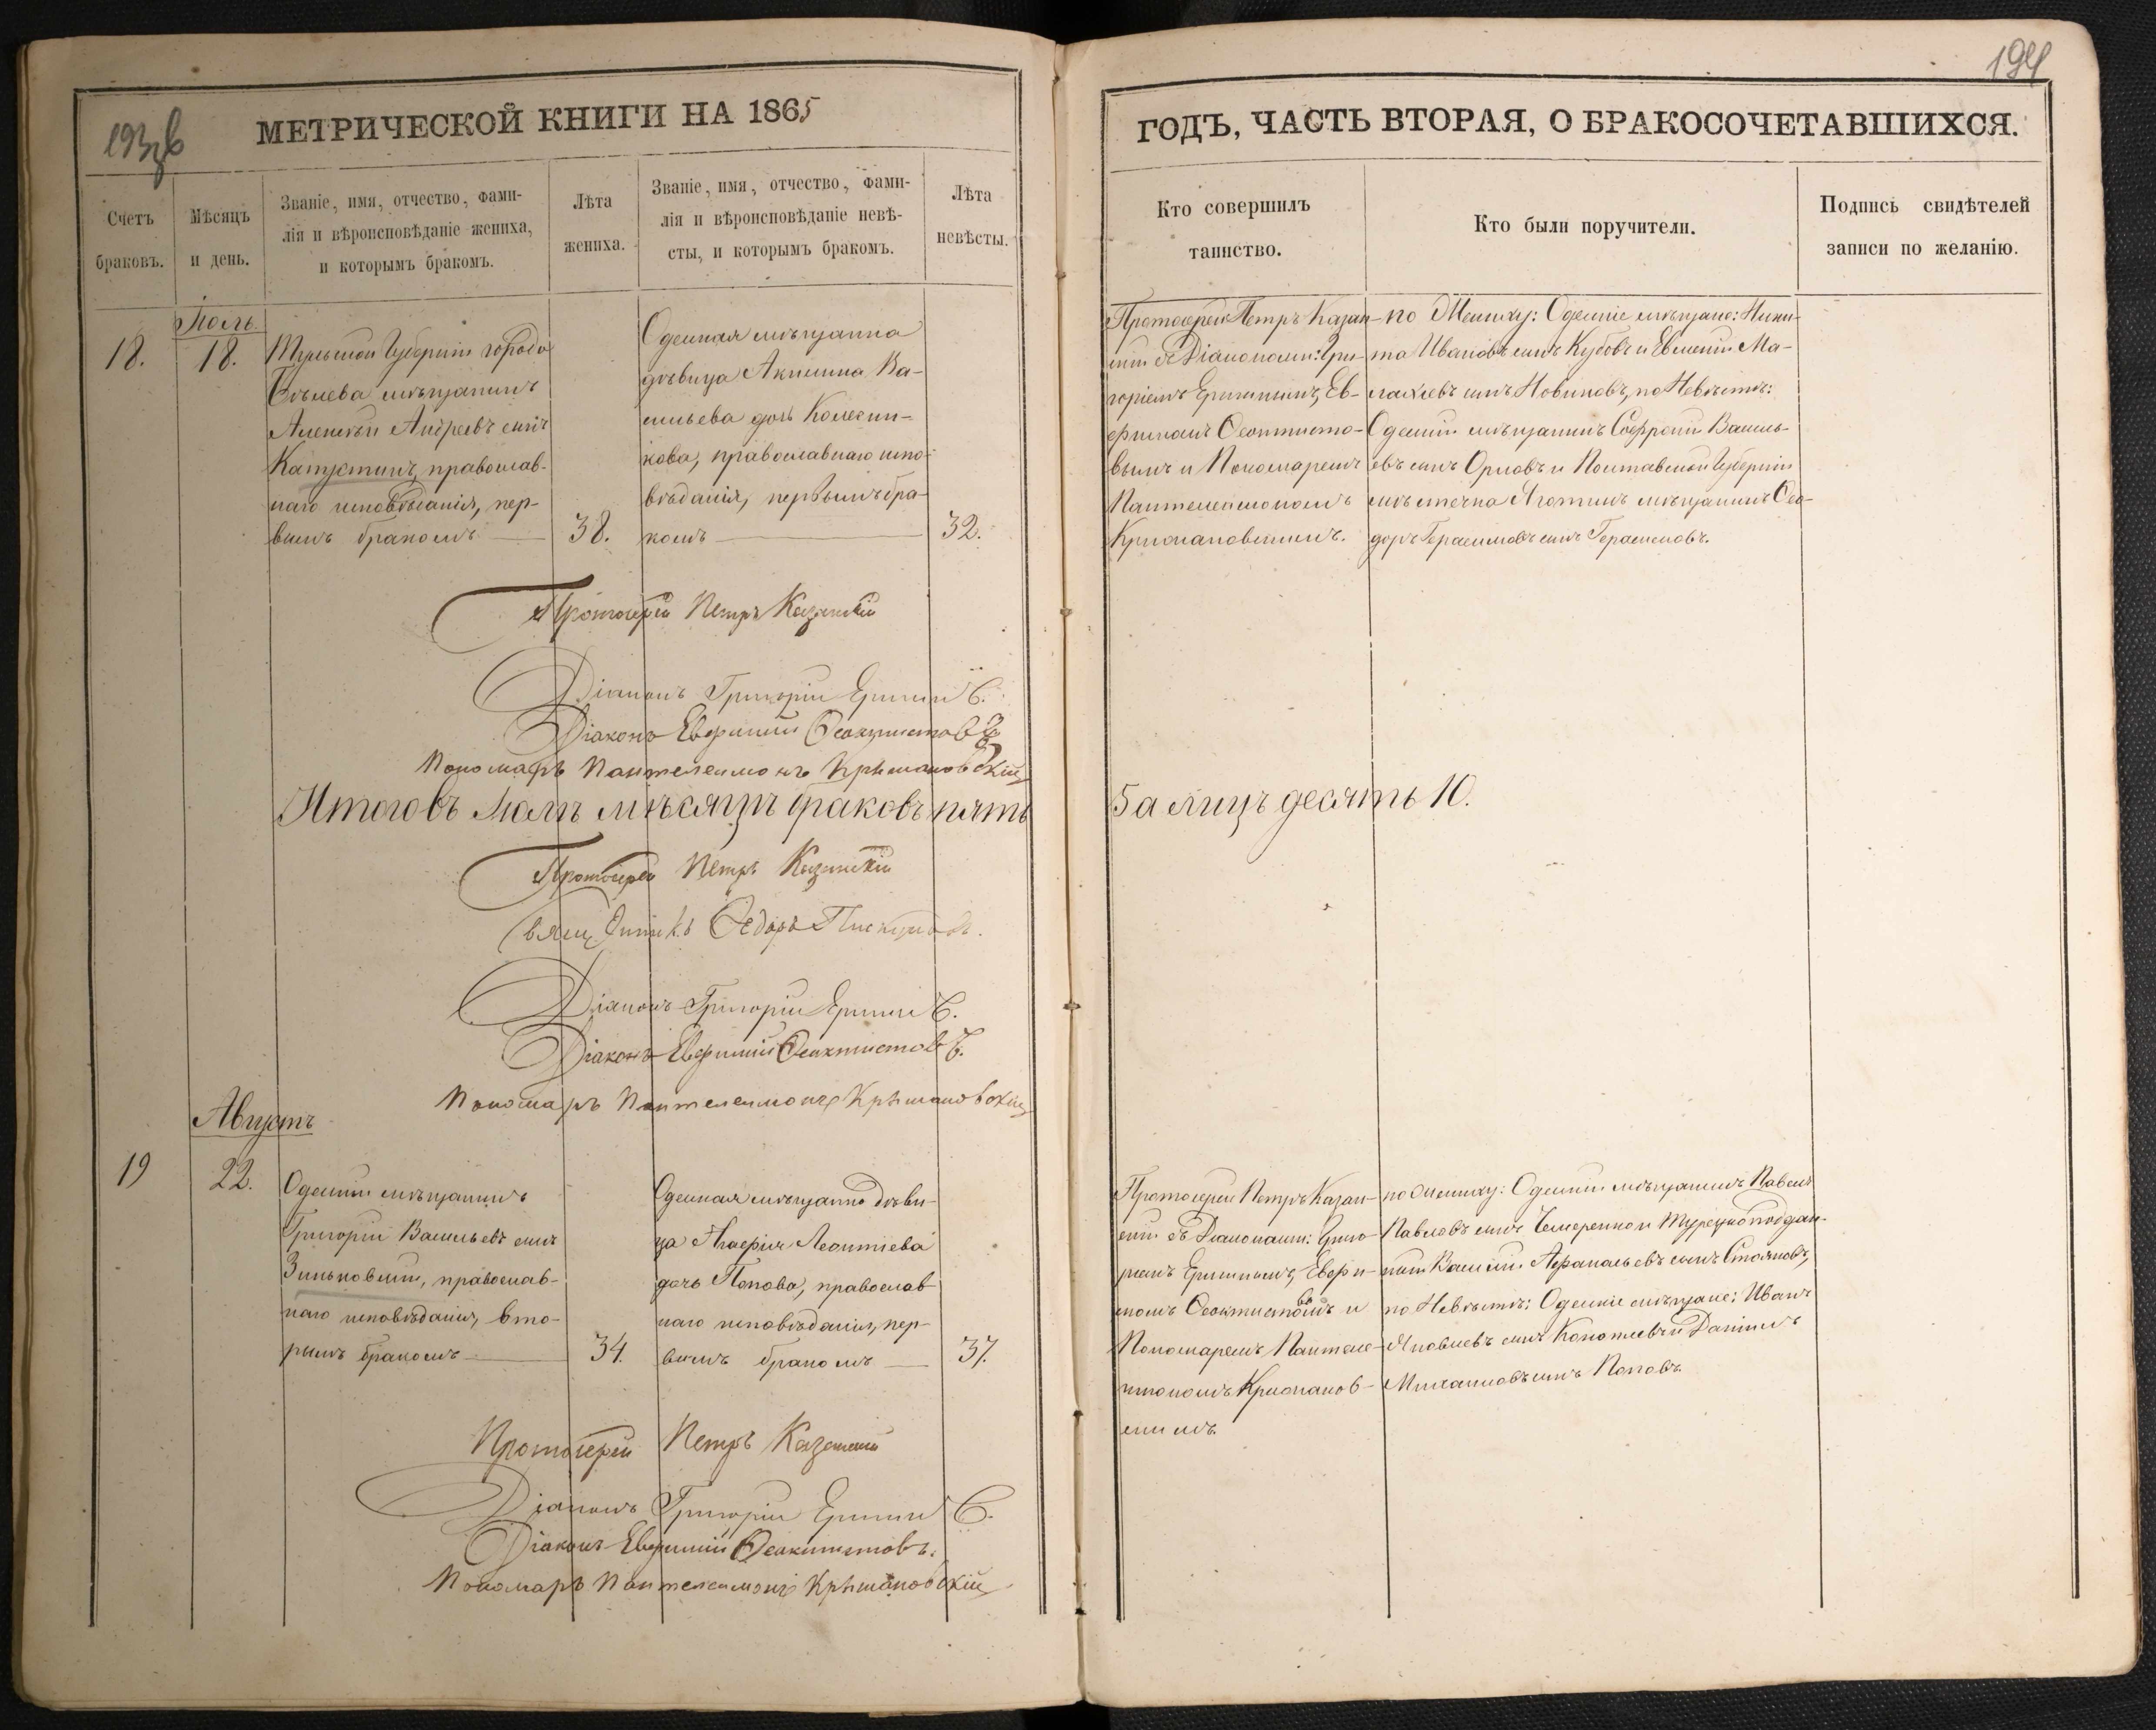 193 зв
МЕТРИЧЕСКОЙ КНИГИ НА 1865
Счетъ
браковъ.
Мѣсяцъ
и день.
Званіе, имя, отчество, фами-
лія и вѣроисповѣданіе жениха,
и которымъ бракомъ.
Лѣта
жениха.
Званіе, имя, отчество, фами-
лія и вѣроисповѣданіе невѣ-
сты, и которымъ бракомъ.
Лѣта
невѣсты.
Іюль.
18.
18.
Тульской Губерніи города
Бѣлева мѣщанинъ
Алексѣй Андреевъ сынъ
Капустинъ, православ-
наго исповѣданія, пер-
вымъ бракомъ
38.
Одесская мѣщанка
дѣвица Акилина Ва-
сильева дочь Колесни-
кова, православнаго испо-
вѣданія, первымъ бра-
комъ
32.
Протоіерей Петръ Казанскій
Діаконъ Григорій Ершин
Діаконъ Евфимій Ѳеоктистовъ
Пономарь Пантелеимонъ Крыжановскій
Итого въ Іюлѣ мѣсяцѣ браковъ пять
Протоіерей Петръ Казанскій
Священникъ Ѳедоръ
Діаконъ Григорій Ершин
Діаконъ Евфимій Ѳеоктистовъ.
Пономарь Пантелеимонъ Крыжановскій
Августъ
19
22.
Одесскій мѣщанинъ
Григорій Васильевъ сынъ
Зиньковскій, православ-
наго исповѣданія, вто-
рымъ бракомъ
34.
Одесская мѣщанка дѣви-
ца Агафія Леонтіева
дочь Попова, православ
наго исповѣданія, пер-
вымъ бракомъ
37.
Протоіерей Петръ Казанскій
Діаконъ Григорій Ершин
Діаконъ Евфимій Ѳеоктистовъ.
Пономарь Пантелеимонъ Крыжановскій
194
ГОДЪ, ЧАСТЬ ВТОРАЯ, О БРАКОСОЧЕТАВШИХСЯ.
Кто совершилъ
таинство.
Кто были поручители.
Подпись свидѣтелей
записи по желанію.
Протоіерей Петръ Казан-
скій съ Діаконами: Гри-
горіемъ Ершинымъ, Ев-
фиміемъ Ѳеоктисто-
вымъ и Пономаремъ
Пантелеимономъ
Крыжановскимъ.
по Жениху: Одесскіе мѣщане: Ники-
та Ивановъ сынъ Кубовъ и Евгеній Ма-
лахіевъ сынъ Новиковъ, по Невѣстѣ:
Одесскій мѣщанинъ Софроній Василь-
евъ сынъ Орловъ и Полтавской Губерніи
мѣстечка Яготинъ мѣщанинъ Ѳео-
доръ Герасимовъ сынъ Герасимовъ.
5 а лицъ десять 10.
Протоіерей Петръ Казан-
скій съ Діаконами: Григо-
ріемъ Ершинымъ, Евфи-
міемъ Ѳеоктистовымъ и
Пономаремъ Пантеле-
имономъ Крыжанов-
скимъ
по Жениху: Одесскій мѣщанинъ Павелъ
Павловъ сынъ и Турецкоподдан-
ный Василій Афанасьевъ сынъ Стояновъ,
по Невѣстѣ: Одесскіе мѣщане: Иванъ
Яковлевъ сынъ и Даніилъ
Михаиловъ сынъ Поповъ.